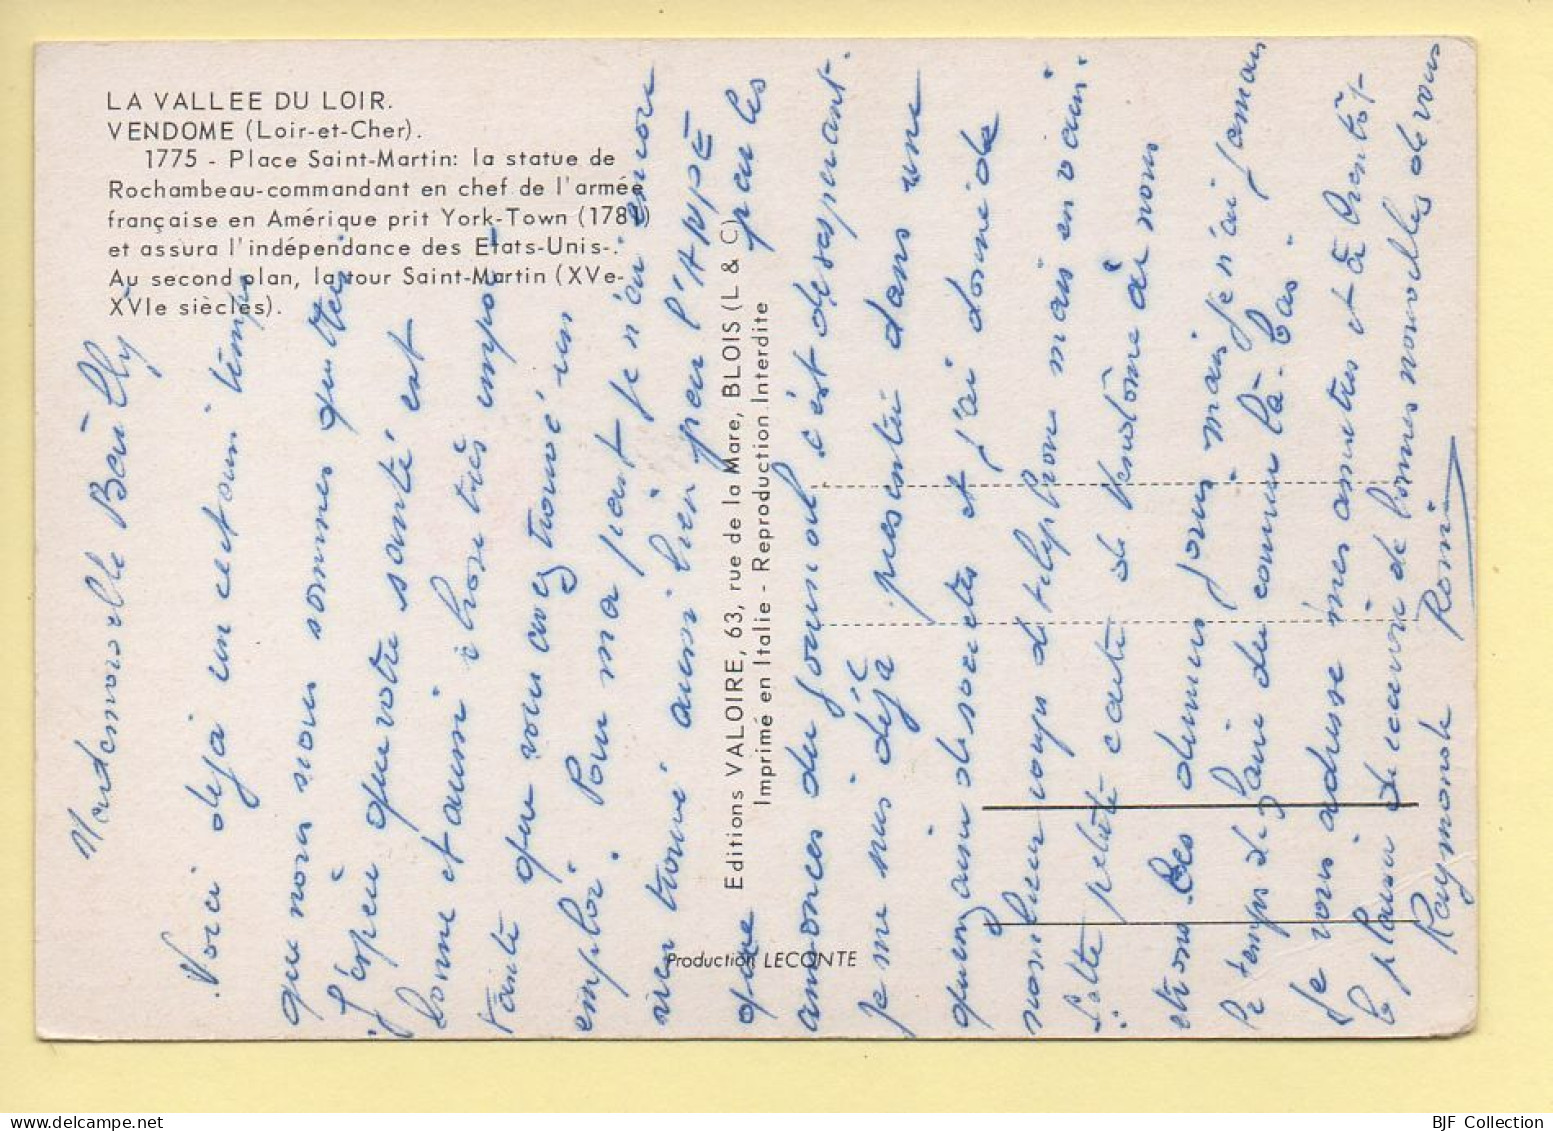 LA VALLEE DU LOIR.
VENDOME (Loir-et-Cher).
1775 - Place Saint-Martin: la statue de
Rochambeau-commandant en chef de l'armée
française en Amérique prit York-Town (1781)
et assura l'indépendance des Etats-Unis-.
Au second plan, la tour Saint-Martin (XVe-
XVIe siècles).
Editions VALOIRE, 63, rue de la Mare, BLOIS (L & C)
Imprimé en Italie - Reproduction Interdite
Production LECONTE
Mademoiselle
Voici déjà un certain temps
que nous nous sommes quittés
J'espère que votre santé est
bonne et aussi chose très impor
tante que vous avez trouvé un
emploi. Pour ma part je n'ai encore
rien trouvé aussi bien par l'APPE
que par les
annonces du journal c'est désespérant.
Je me suis déjà présentée dans une
quinzaine de sociétés et j'ai donné de
nombreux coups de téléphone mais en vain.
Cette petite carte de Vendôme où nous
étions ces derniers jours mais je n'ai jamais
le temps de faire du courrier là-bas.
Je vous adresse mes amitiés et à bientôt
le plaisir de recevoir de bonnes nouvelles de vous
Raymonde